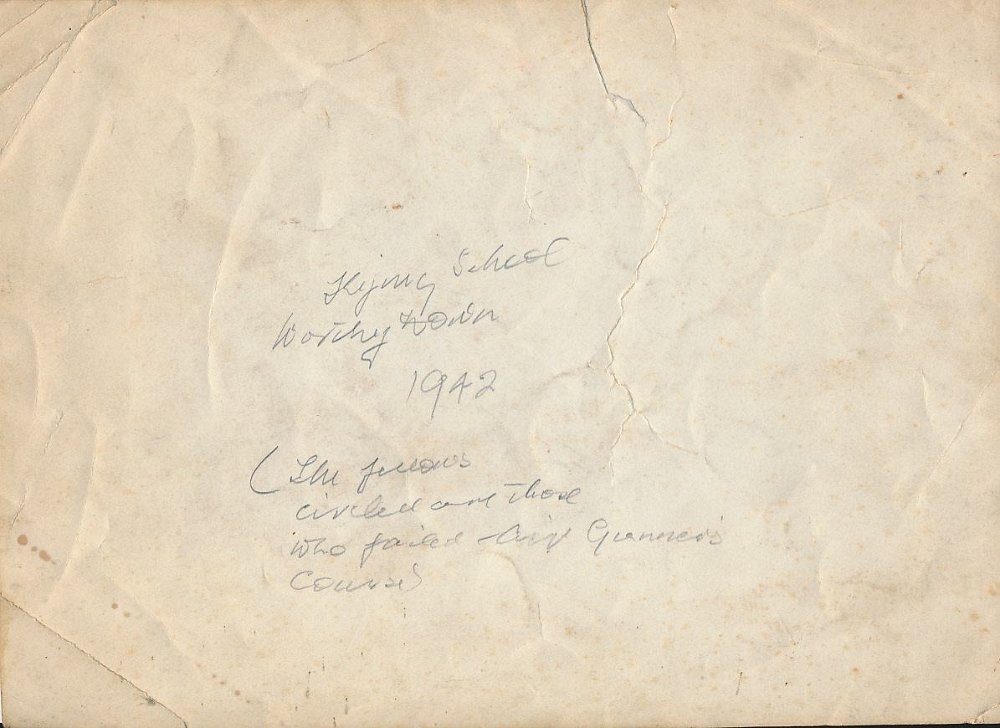 Flying School
Worthy Down
1942
(The fellows
circled are those
who failed their Gunners
Course)